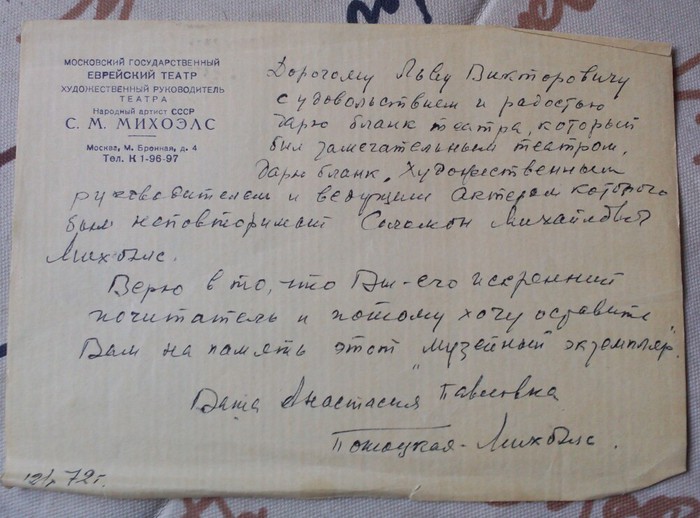 МОСКОВСКИЙ ГОСУДАРСТВЕННЫЙ
ЕВРЕЙСКИЙ ТЕАТР
ХУДОЖЕСТВЕННЫЙ РУКОВОДИТЕЛЬ
ТЕАТРА
Народный артист СССР
С. М. МИХОЭЛС
Москва, М. Бронная, д. 4
Тел. К 1-96-97
Дорогому Льву Викторовичу
с удовольствием и радостью
дарю бланк театра, который
был замечательным театром,
дарю бланк, Художественным
руководителем и ведущим Актером которого
был неповторимый Соломон Михайлович
Михоэлс.
Верю в то, что Вы - его искренний
почитатель и потому хочу оставить
Вам на память этот "музейный экземпляр".
Ваша Анастасия Павловна
Потоцкая-Михоэлс.
72 г.